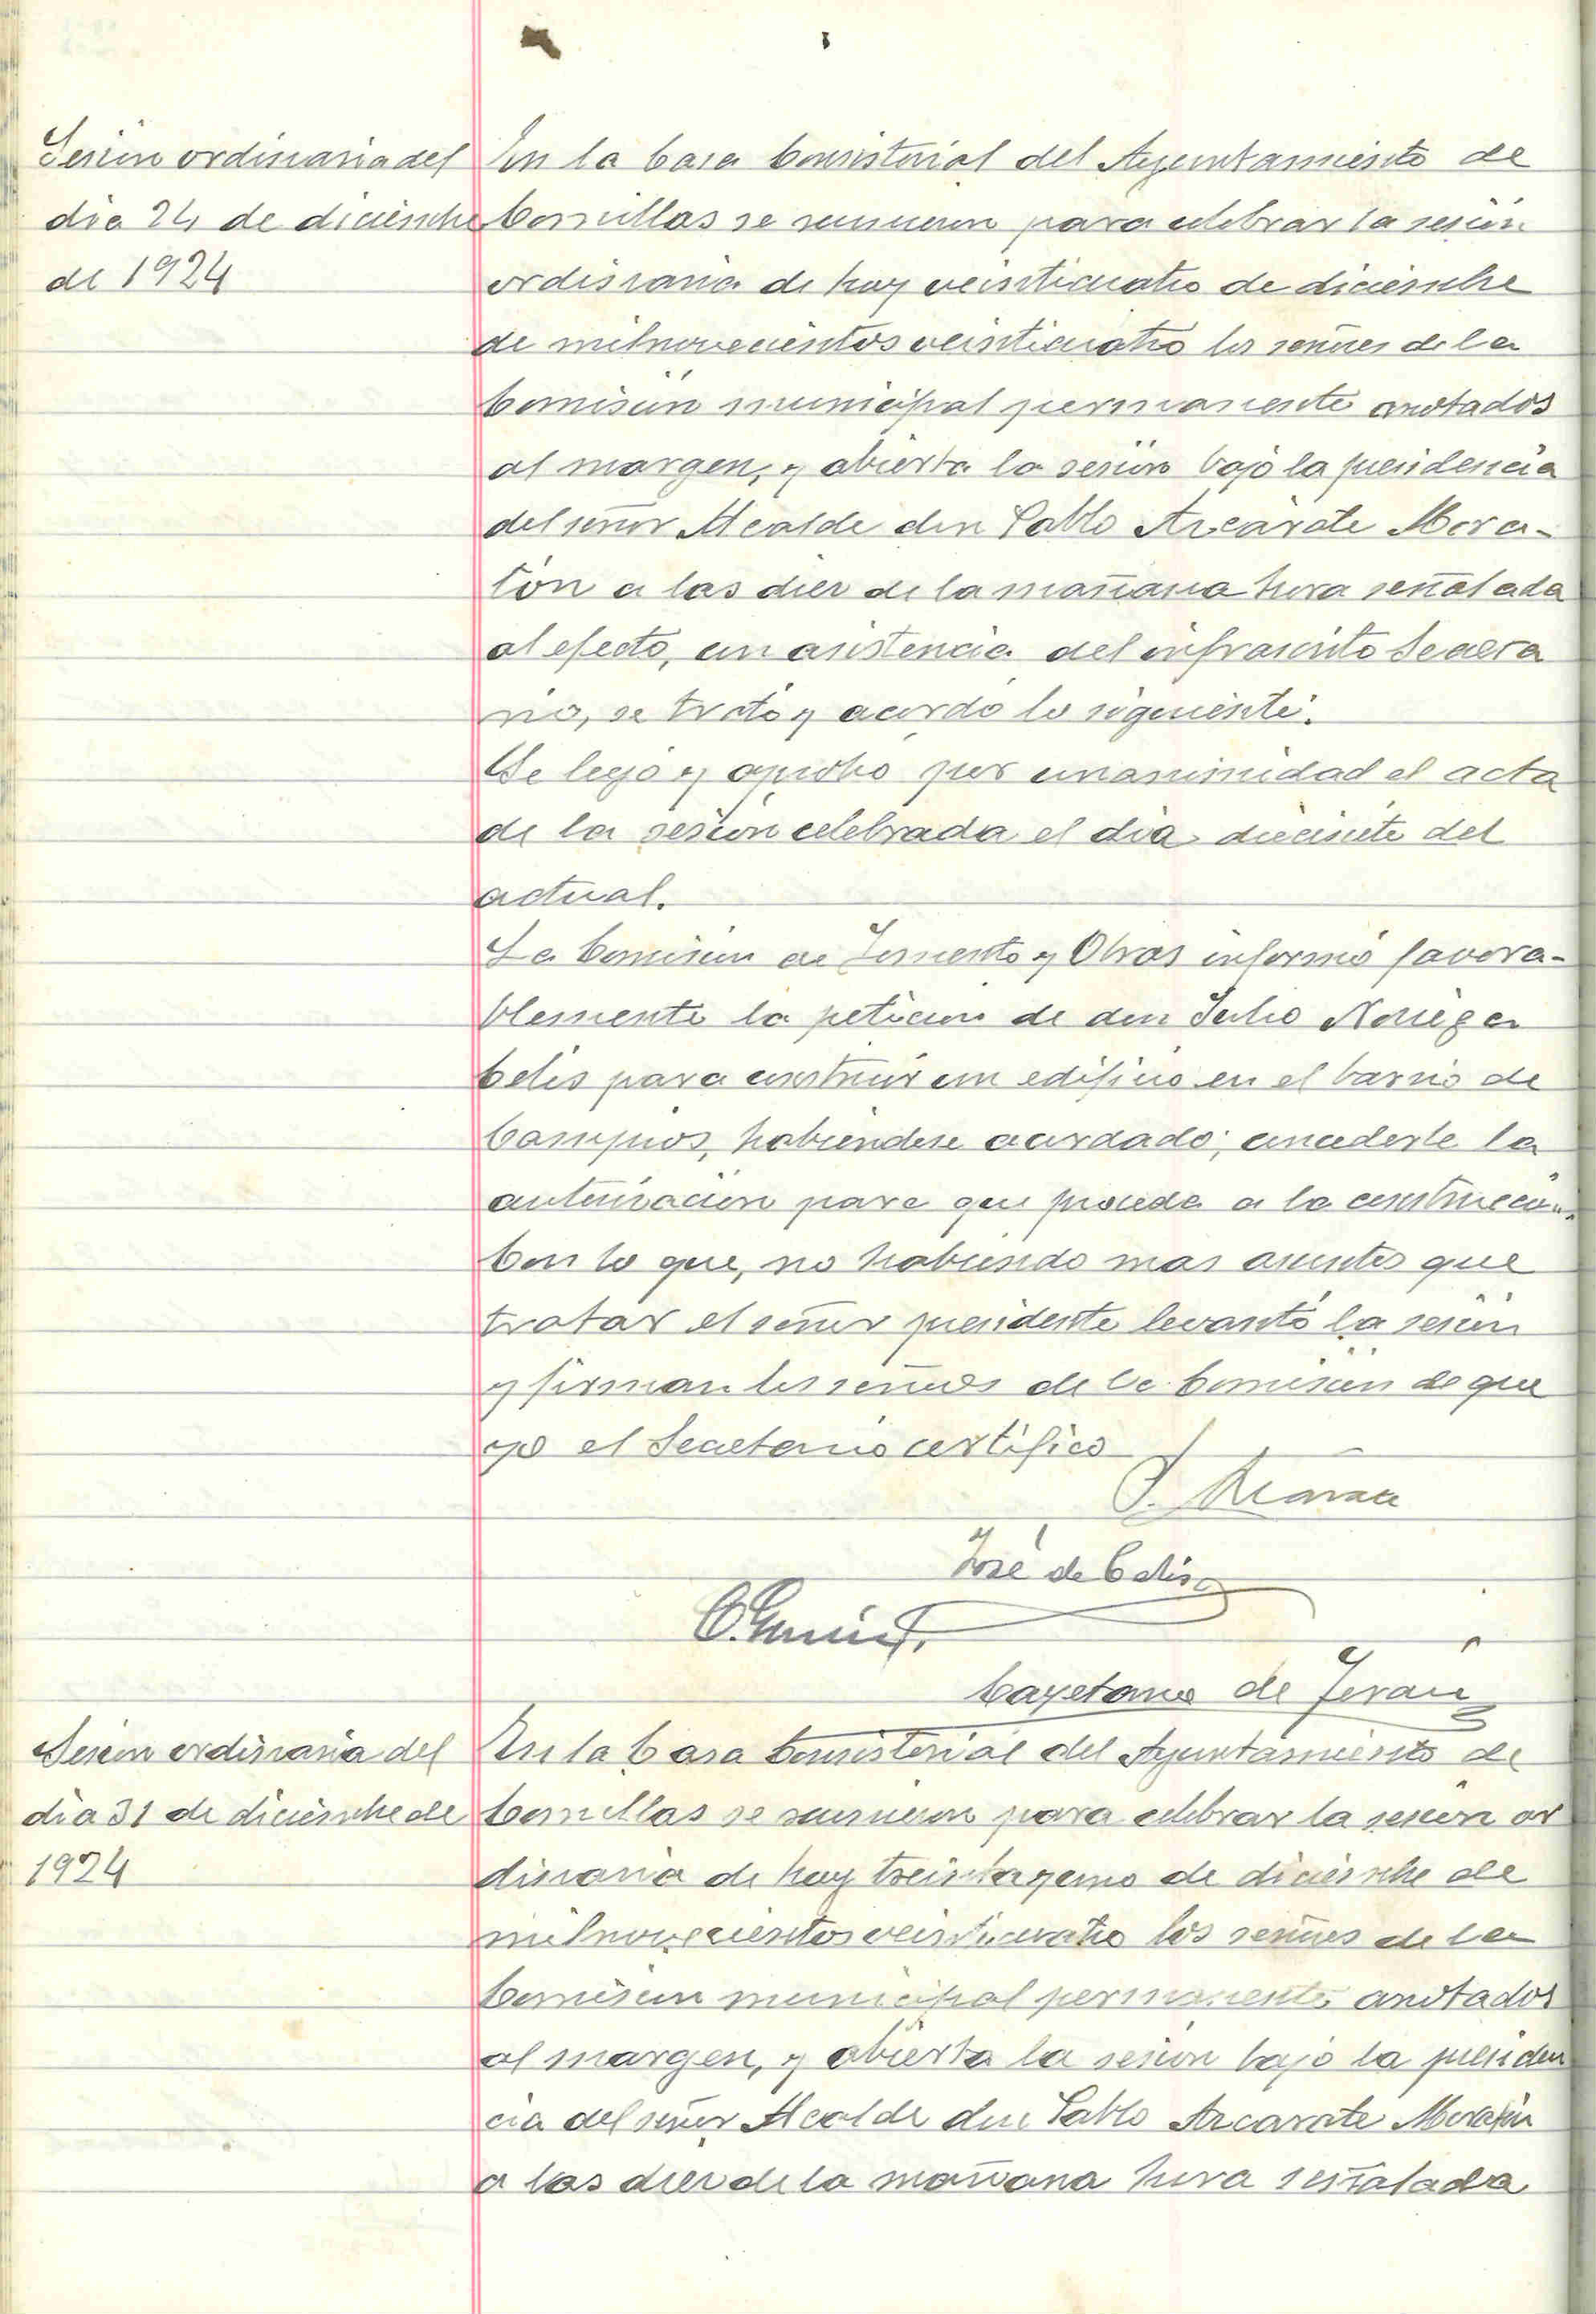 Sesión ordinaria del
día 24 de diciembre
de 1924
En la Casa Consistorial del Ayuntamiento de
Comillas se reunieron para celebrar la sesión
ordinaria de hoy veinticuatro de diciembre
de milnovecientos veinticuatro los señores de la
Comisión municipal permanente anotados
al margen, y abierta la sesión bajo la presidencia
del señor Alcalde don Pablo Azcárate Mora-
tón a las diez de la mañana hora señalada
al efecto, con asistencia del infrascrito Secreta
rio, se trató y acordó lo siguiente.
Se leyó y aprobó por unanimidad el acta
de la sesión celebrada el día diecisiete del
actual.
La Comisión de Fomento y Obras informó favora-
blemente la petición de don Julio Noriega
Celis para construir un edificio en el barrio de
Campios, habiéndose acordado; concederle la
autorización para que proceda a la construcción.
Con lo que, no habiendo mas asuntos que
tratar el señor presidente levantó la sesión
y firman los señores de la Comisión de que
yo el Secretario certifico
José de Celis
Cayetano de Terán
Sesión ordinaria del
día 31 de diciembre de
1924
En la Casa Consistorial del Ayuntamiento de
Comillas se reunieron para celebrar la sesión or
dinaria de hoy treinta y uno de diciembre de
milnovecientos veinticuatro los señores de la
Comisión municipal permanente anotados
al margen, y abierta la sesión bajo la presiden
cia del señor Alcalde don Pablo Azcarate Moratón
a las diez de la mañana hora señalada